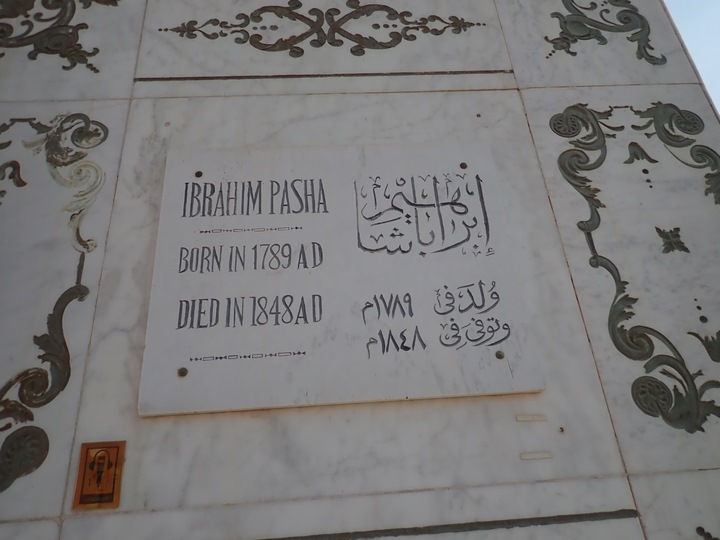 IBRAHIM PASHA
BORN IN 1789 AD
DIED IN 1848 AD
إبراهيم باشا
وُلدَ فى ١٧٨٩م
وتوفى فِى ١٨٤٨م